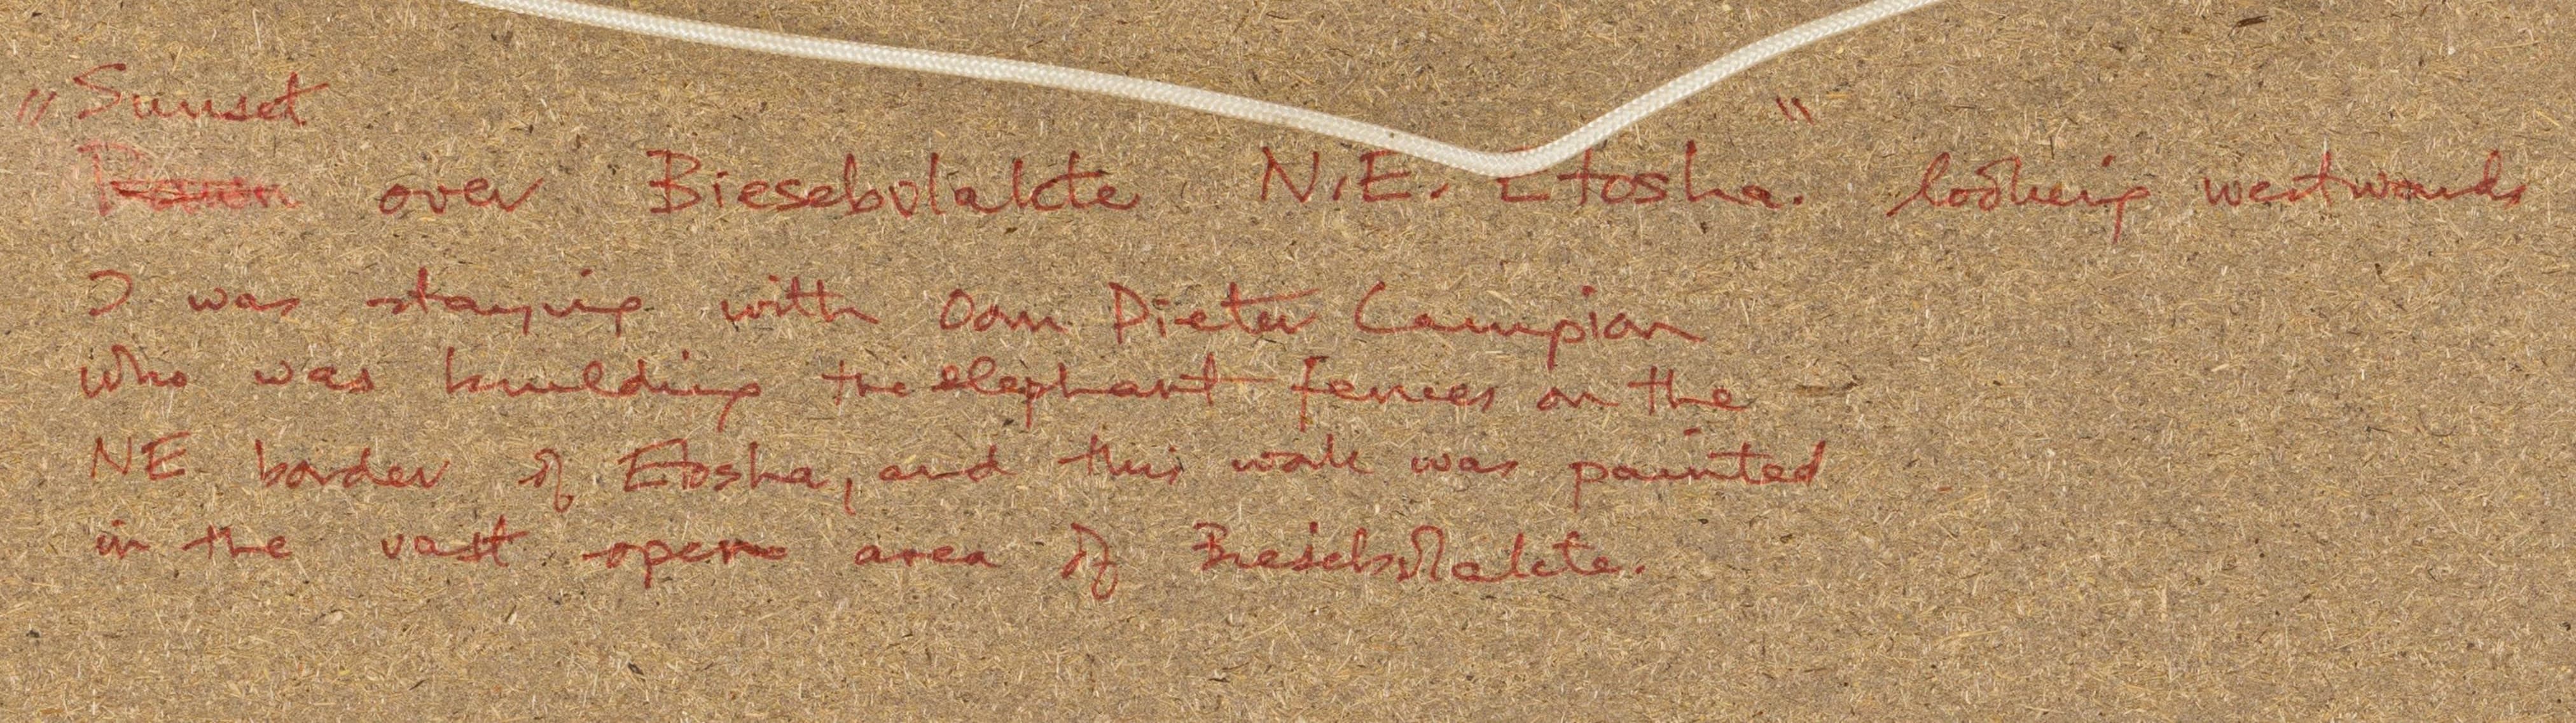 „Sunset
over Biesebvlakte N.E. Etosha." looking westwards
I was staying with Oom Dieter Campion
who was building the elephant fences on the
NE border of Etosha, and this work was painted
in the vast open area of Biesebvlakte.